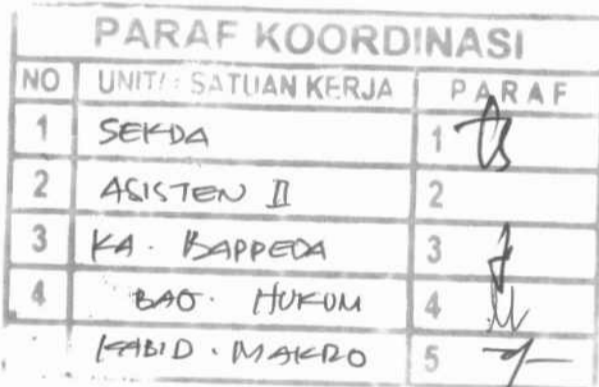 PARAF KOORDINASI
NO UNIT/ SATUAN KERJA PARAF
1 SEKDA 1
2 ASISTEN II 2
3 KA. BAPPEDA 3
4 BAG. HUKUM 4
KABID. MAKRO 5